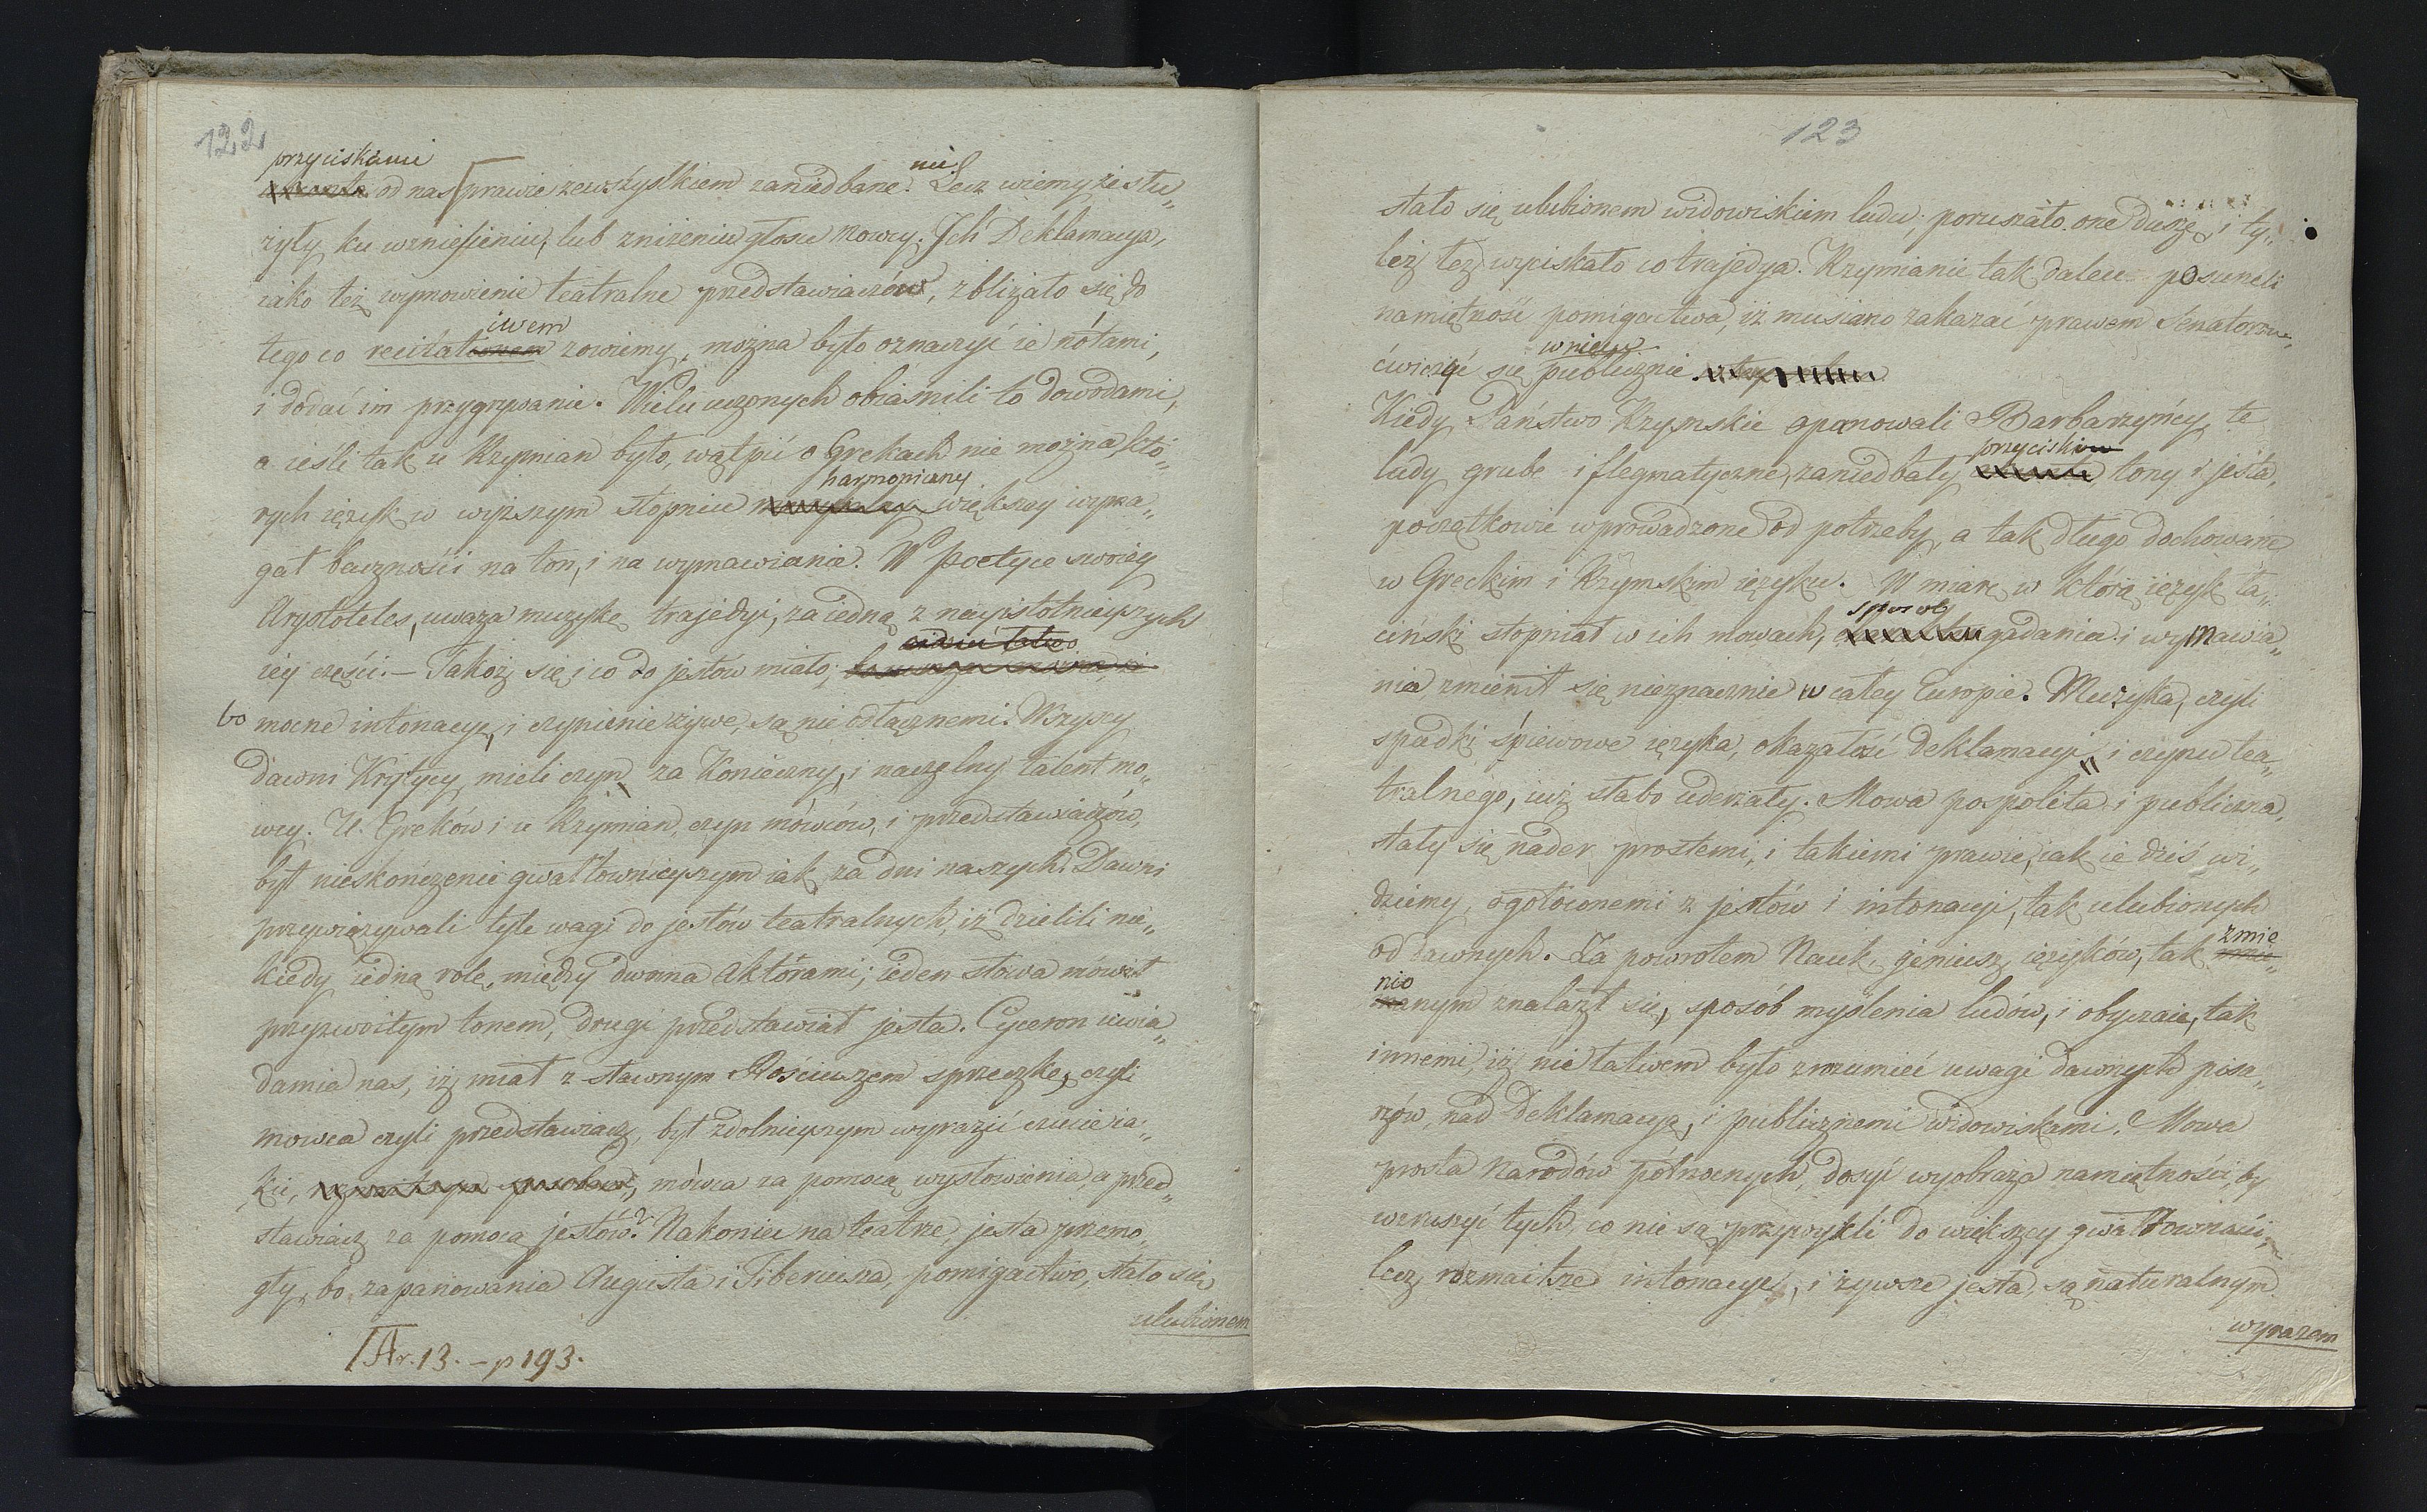 122
przyciskami
od nas prawie zewszystkiem zaniedbane. Lecz wiemy że słu„
nie
żyły ku wzniesieniu, lub zniżeniu głosu mowcy. Ich Deklamacya,
iako też wymowienie teatralne przedstawiaczów, zbliżało się do
iwem
tego co recitationem zowiemy, można było oznaczyć ie nótami,
i dodać im przygrywanie. Wielu uczonych obiasnili to dowodami,
a ieśli tak u Rzymian było, wątpić o Grekach nie można któ„
harmoniczny
rych ięzyk w wyższym stopniu większey wyma„
gał baczności na ton, i na wymawianie. W poetyce swoiey
Arystoteles, uważa muzykę trajedyi, za iedną z nayistotnieyszych
iey części. – Takoż się i co do jestów miało;
bo mocne intonacye, i czynienie żywe, są nie odłącznemi. Wszyscy
dawni Krytycy mieli czyn za konieczny, i naczelny talent mo„
wcy. U Greków i u Rzymian, czyn mówców, i przedstawiaczów,
był nieskończenie gwałtownieyszym iak za dni naszych. Dawni
przywięzywali tyle wagi do jestów teatralnych, iż dzielili nie„
kiedy iedną rolę, między dwoma aktorami; ieden słowa mówił
przyzwoitym tonem, drugi przedstawiał jesta. Cyceron uwia„
damia nas, iż miał z sławnym Rościuszem sprzeczkę, czyli
mowca czyli przedstawiacz, był zdolnieyszym wyrazić czucie ia„
kie, mówca za pomocą wysłowienia, a przed„
stawiacz za pomocą jestów? Nakoniec na teatrze, jesta przemo„
gły, bo za panowania Augusta i Tiberiusza, pomigactwo, stało się
ulubionem
Ar. 13. – p 193.
123
stało się ulubionem widowiskiem ludu; poruszało one duszę, i ty„
leż łez wyciskało co trajedya. Rzymianie tak dalece posuneli
namiętność pomigactwa, iż musiano zakazać prawem Senatorom,
w niem
ćwiczyć się publicznie.
Kiedy Państwo Rzymskie opanowali Barbarzyńcy, te
przycisków
ludy grube i flegmatyczne, zaniedbały tony i jesta,
początkowie wprowadzone od potrzeby, a tak długo dochowane
w Greckim i Rzymskim ięzyku. W miarę w którą ięzyk ła„
sposob
ciński stopniał w ich mowach, gadania i wymawia„
nia zmienił się nieznacznie w całey Europie. Muzyka, czyli
spadki śpiewowe ięzyka, okazałość deklamacyi, i czynu tea„
tralnego, iuż słabo uderzały. Mowa pospolita i publiczna,
stały się nader prostemi, i takiemi prawie, iak ie dziś wi„
dziemy, ogołoconemi z jestów i intonacyi, tak ulubionych
od dawnych. Za powrotem Nauk, jeniusz ięzyków, tak zmie
nio
nanym znalazł się, sposób myślenia ludów, i obyczaie, tak
innemi, iż nie łatwem było zrozumieć uwagi dawnych pisa„
rzów, nad deklamacyą, i publicznemi widowiskami. Mowa
prosta Narodów północnych, dosyć wyobraża namiętności, by
wzruszyć tych, co nie są przywykli do większey gwałtowności,
lecz rozmaitsze intonacye, i żywsze jesta, są naturalnym
wyrazem